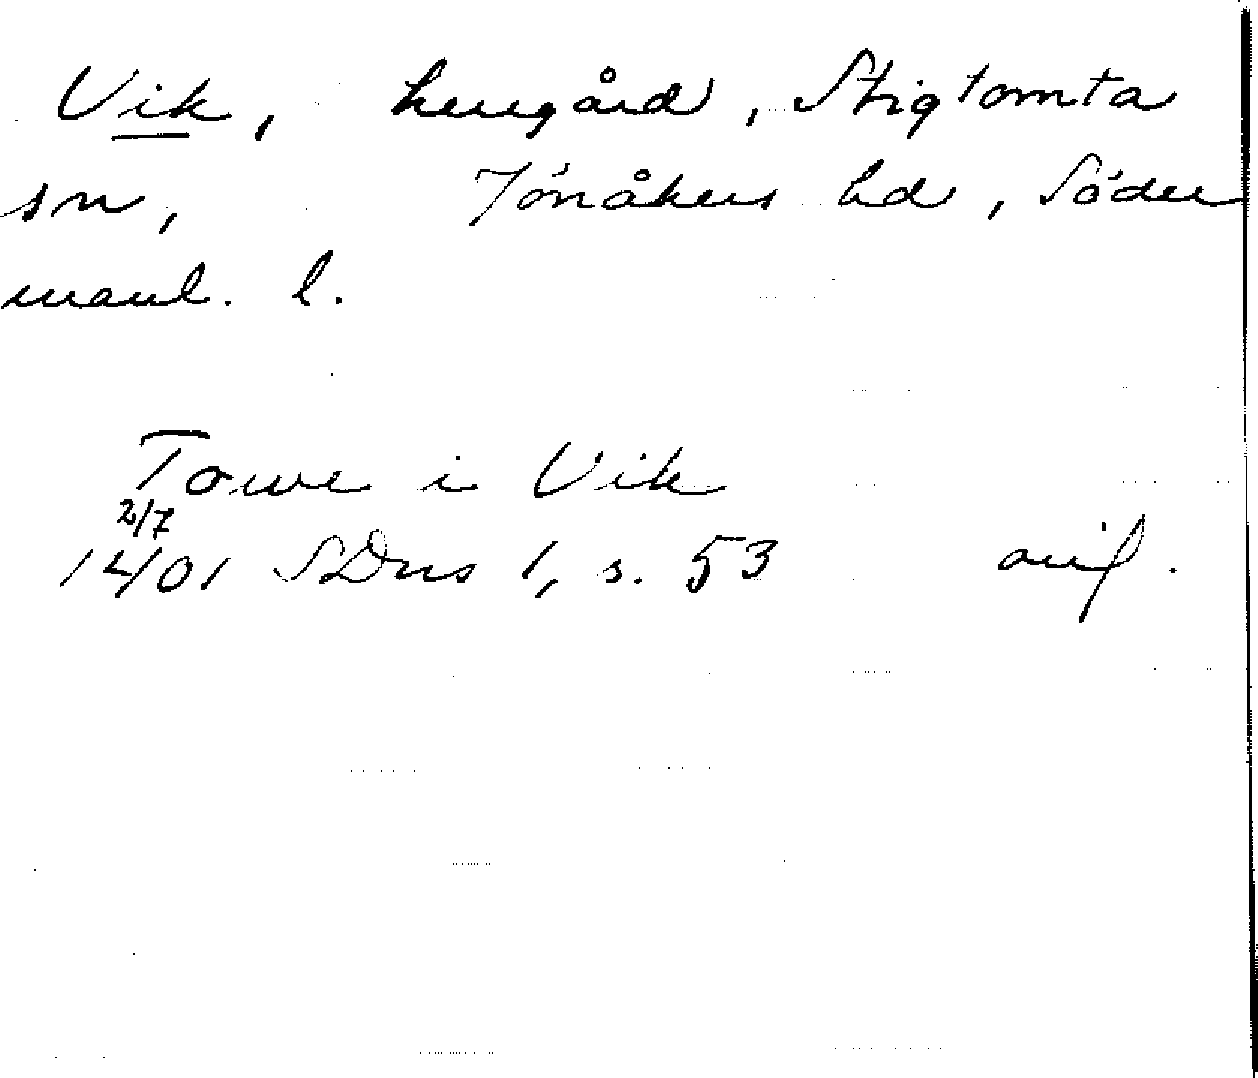 Vik, herrgård, Stigtomta
sn, Jönåkers hd, Söder
manl. l.
Towe i Vik
2/7
1401 SDns 1, s. 53 avs.